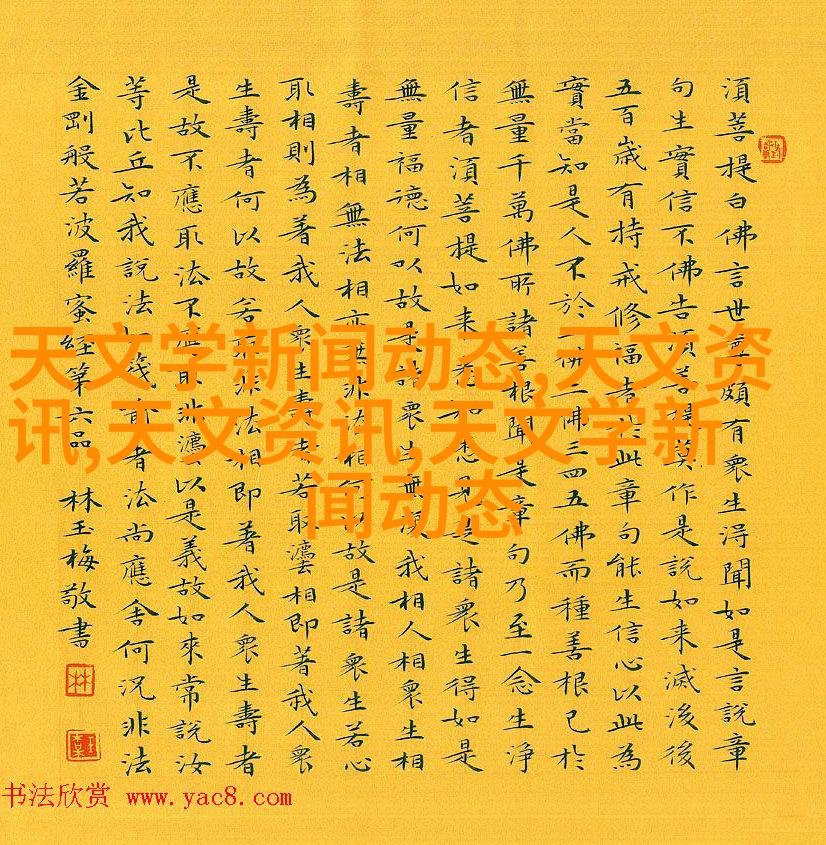 湏菩提白佛言世尊頗有衆生淂聞如是言說章
句生實信不佛告湏菩提莫作是說如来滅後後
五百歳有持戒修福者於此章句能生信心以此為
實當知是人不於一佛二佛三四五佛而種善根已於
無量千萬佛所諸善根聞是章句乃至一念生淨
信者湏菩提如来悉知悉見是諸衆生得如是
無量福德何以故是諸衆生無復我相人相衆生相
壽者相無法相亦無非法相何以故是諸衆生若心
取相則為著我人衆生壽者若取灋相即著我人衆
生壽者何以故若取非法相即著我人衆生壽者
是故不應取法不應取非灋以是義故如來常說汝
等比丘知我說法如筏喻者法尚應舍何况非法
金剛般若波羅蜜經第六品 林玉梅敬書
林
天文学新闻动态,天文资
讯,天文资讯,天文学新
闻动态
书法欣赏 www.yac8.com